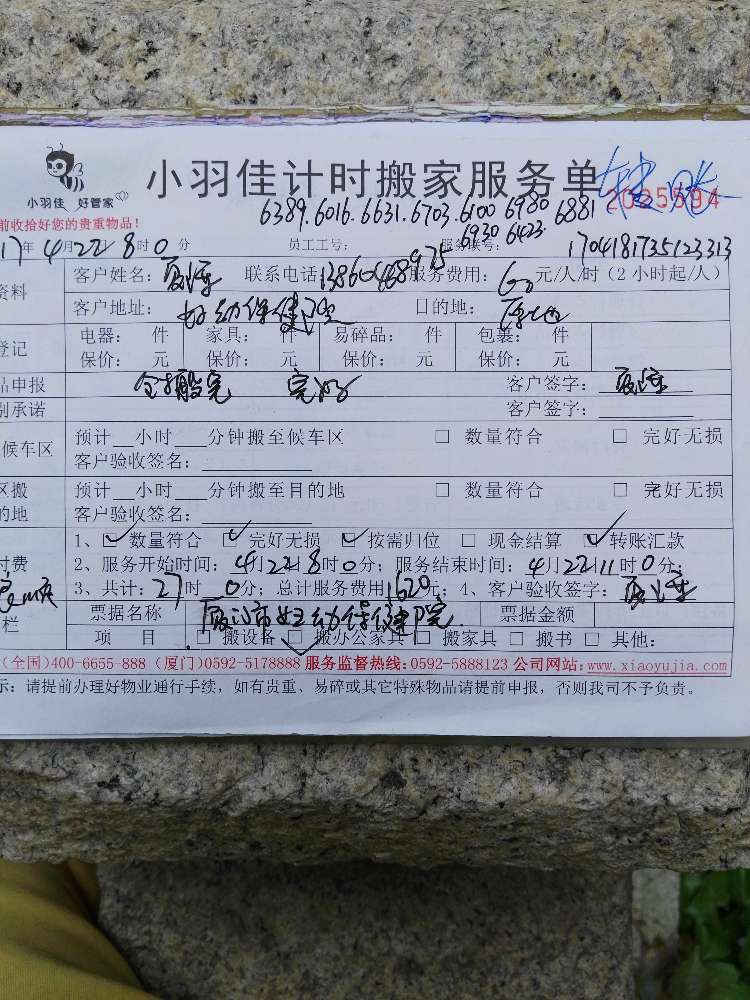 小羽佳计时搬家服务单
小羽佳 好管家
转账
2025594
前收拾好您的贵重物品！
6389.6016.6631.6703.6100 6980 6881
6930 6423
17年4月22日8时0分 员工工号： 服务账号：1704181735123313
资料
客户姓名： 联系电话：13860468975 服务费用：60元/人/时（2小时起/人）
客户地址：妇幼保健院 目的地：原地
登记
电器： 件 家具： 件 易碎品： 件 包裹： 件
保价： 元 保价： 元 保价： 元 保价： 元
品申报 全搬完 完好 客户签字：
别承诺 客户签字：
候车区
预计__小时___分钟搬至候车区 □ 数量符合 □ 完好无损
客户验收签名：
区搬
预计__小时___分钟搬至目的地 □ 数量符合 □ 完好无损
的地 客户验收签名：
1、☑数量符合 ☑完好无损 ☑按需归位 □现金结算 ☑转账汇款
付费 2、服务开始时间：4月22日8时0分；服务结束时间：4月22日11时0分；
3、共计：27时0分；总计服务费用1620元；4、客户验收签字：
栏
票据名称 厦门市妇幼保健院 票据金额
项 目 □搬设备 □搬办公家具 □搬家具 □搬书 □其他：
（全国）400-6655-888（厦门）0592-5178888 服务监督热线：0592-5888123 公司网站：www.xiaoyujia.com
示：请提前办理好物业通行手续，如有贵重、易碎或其它特殊物品请提前申报，否则我司不予负责。